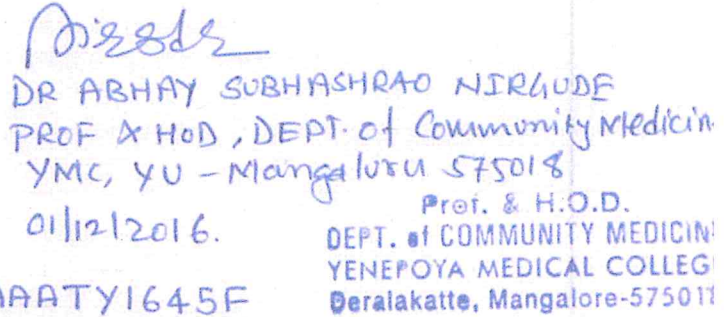 DR ABHAY SUBHASHRAO NIRGUDE
PROF & HOD, DEPT. of Community Medicin
YMC, YU - Mangaluru 575018
01/12/2016.
Prof. & H.O.D.
DEPT. of COMMUNITY MEDICIN
YENEPOYA MEDICAL COLLEG
Deralakatte, Mangalore-575018
AAATY1645F